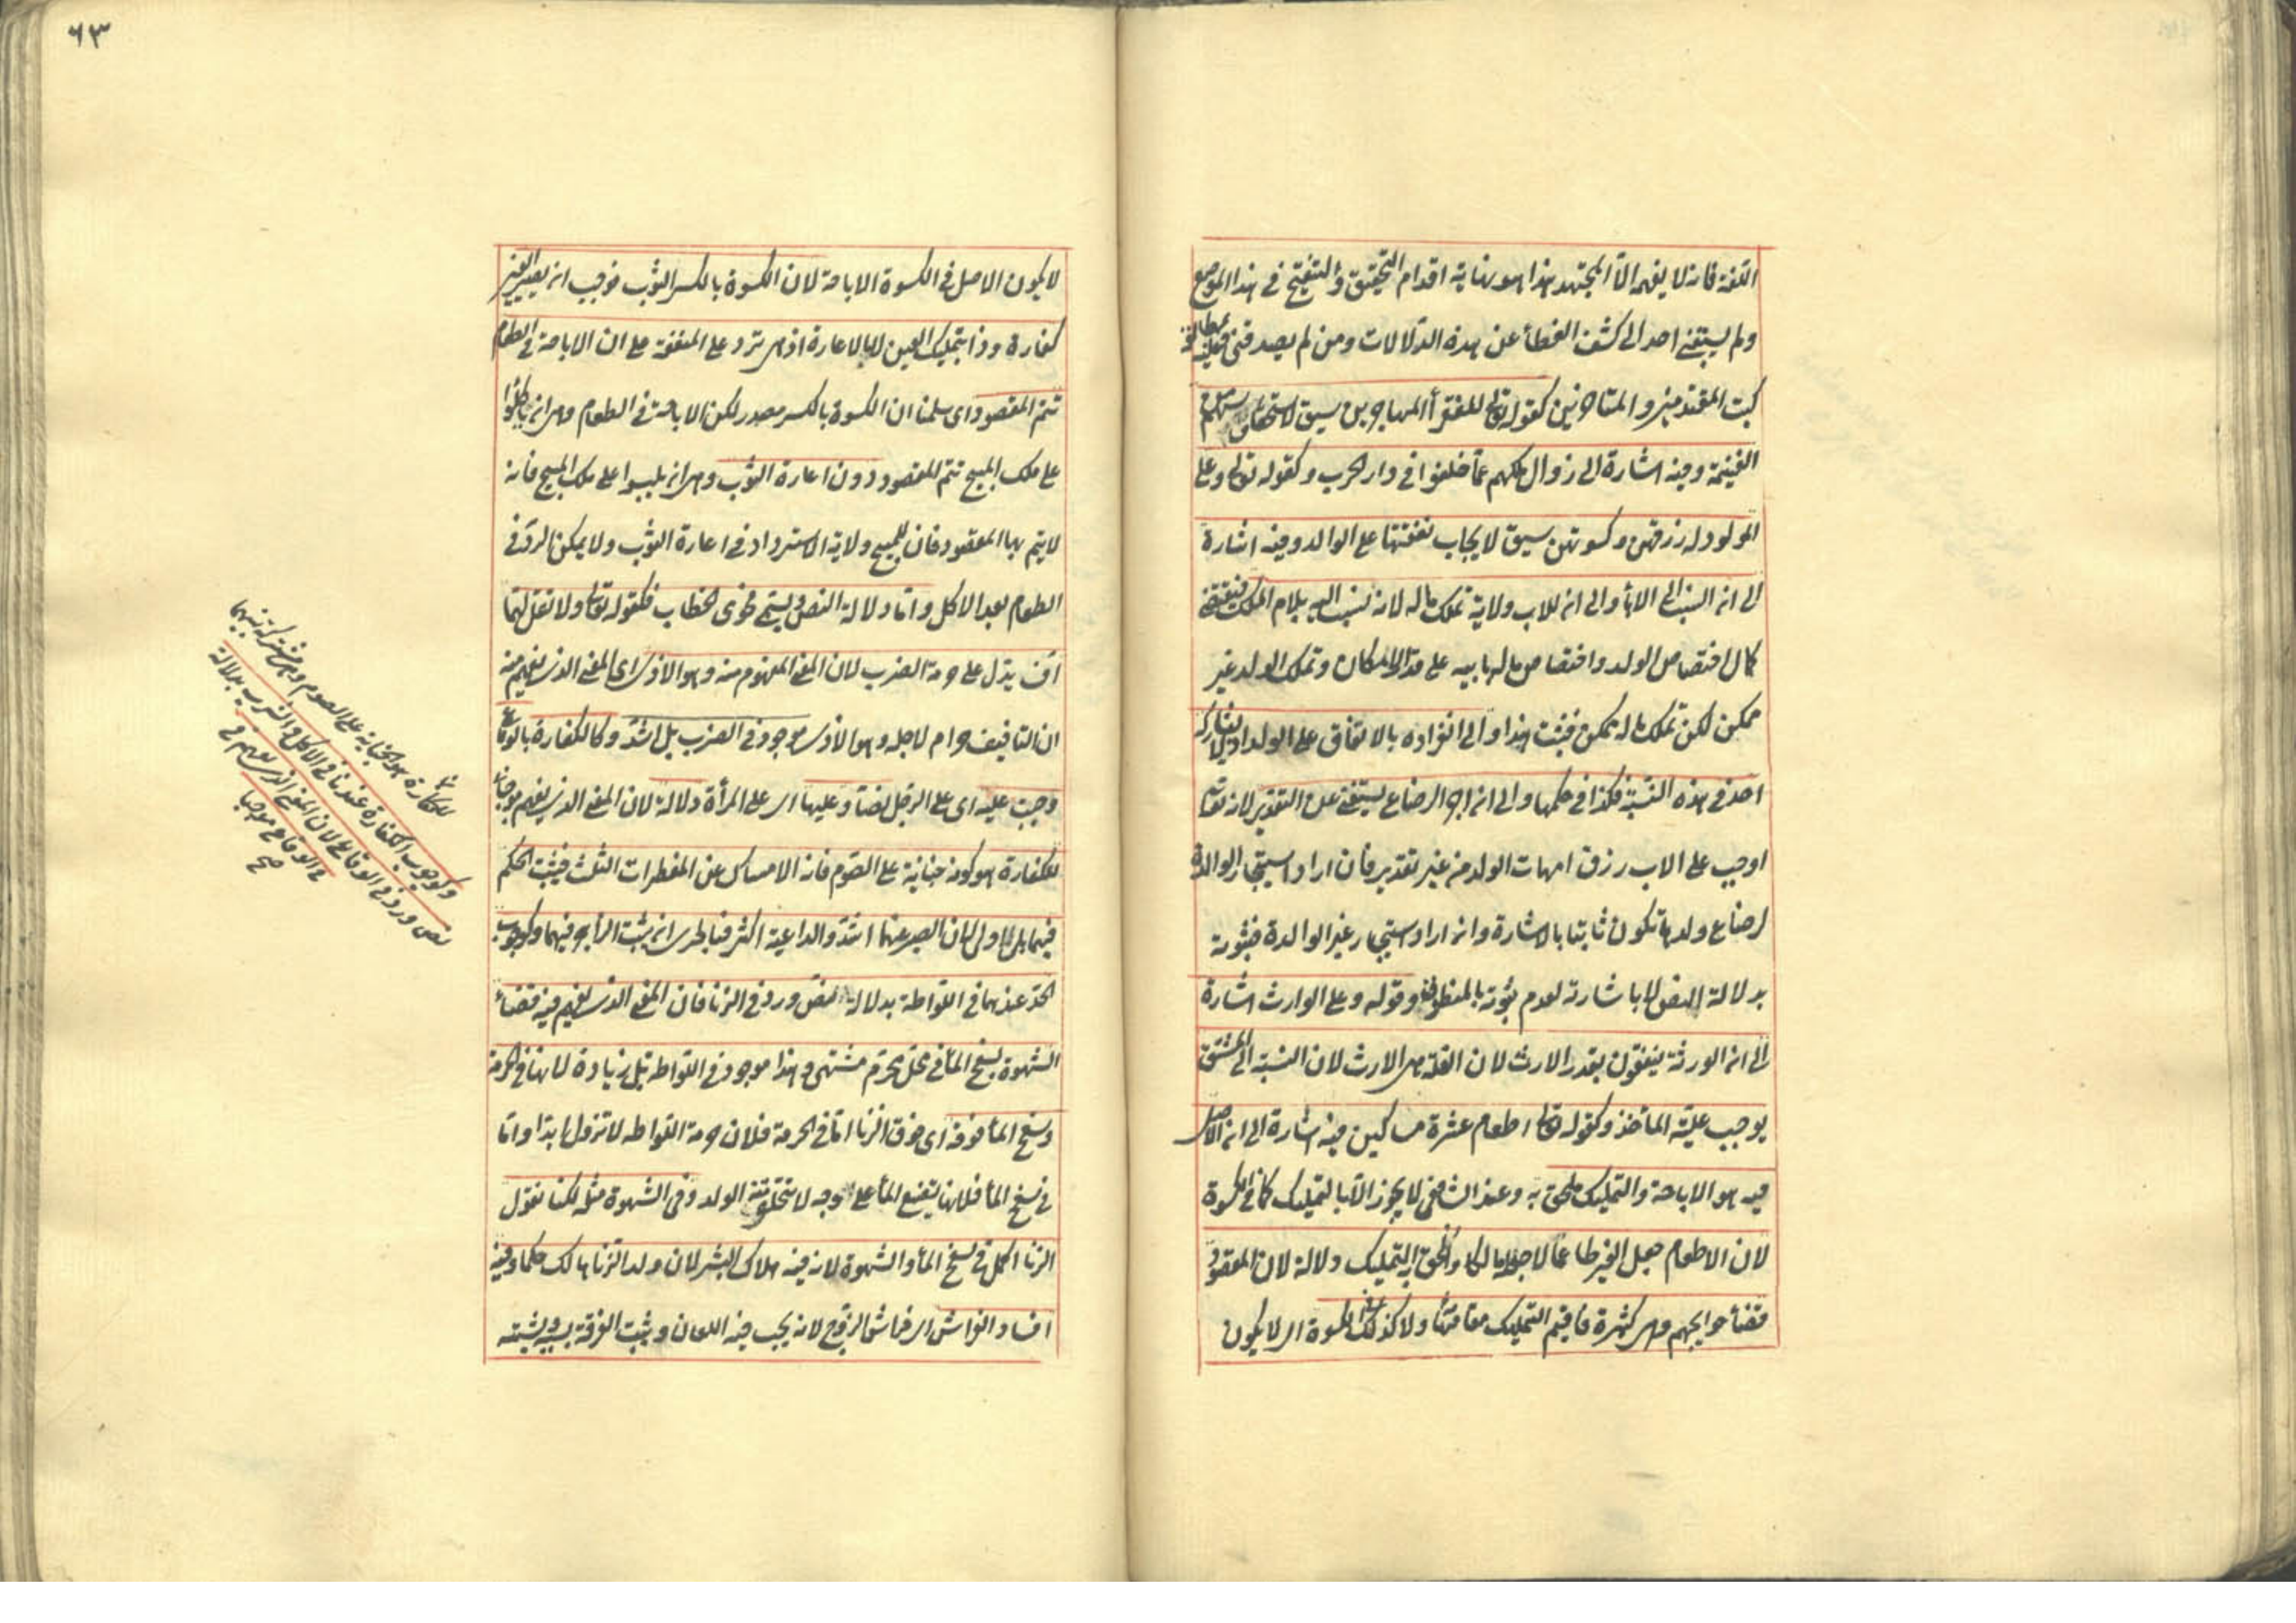 اللغة فانه لا يفهمه الا المجتهد هذا هو نهاية اقدام التحقيق والتنقيح في هذا الموضع
ولم يسبقني احد الى كشف الغطأ عن هذه الدلالات ومن لم يصدقني فعليه بمطالعة
كتب المتقدمين والمتأخرين كقوله تع للفقرأ المهاجرين سيق لاستحقاق سهم من
الغنيمة وفيه اشارة الى زوال ملكهم عما خلفوا في دار الحرب وكقوله تع وعلى
المولود له رزقهن وكسوتهن سيق لايجاب نفقتها على الوالد وفيه اشارة
الى ان النسب الى الابأ والى ان للاب ولاية تملك ماله لانه نسب اليه بلام الملك فيقتضي
كمال اختصاص الولد واختصاص ماله بابيه على قدر الامكان وتملك الولد غير
ممكن لكن تملك ماله ممكن فيثبت هذا والى انفراده بالانفاق على الولد اذ لا يشاركه
احد في هذه النسبة فكذا في حكمها والى ان اجر الرضاع يستغني عن التقدير لانه تعالى
اوجب على الاب رزق امهات الولد من غير تقدير فان اراد استيجار الوالدة
لرضاع ولدها تكون ثابتا بالاشارة وان اراد استيجار غير الوالدة فثبوته
بدلالة النص لا باشارته لعدم ثبوته بالمنظوم وقوله وعلى الوارث اشارة
الى ان الورثة ينفقون بقدر الارث لان العلة هي الارث لان النسبة الى المشتق
يوجب علية المأخذ وكقوله تع اطعام عشرة مساكين فيه اشارة الى ان الاصل
فيه هو الاباحة والتمليك ملحق به وعند الشافعي لا يجوز الا بالتمليك كما في الكسوة
لان الاطعام جعل الغير طاعما لا جعله مالكا والحق به التمليك دلالة لان المقصود
قضأ حوايجهم وهي كثيرة فاقيم التمليك مقامها ولا كذلك في الكسوة اي لا يكون
٦٣
لا يكون الاصل في الكسوة الاباحة لان الكسوة بالكسر الثوب فوجب ان يصير العين
كفارة وذا بتمليك العين لا بالاعارة اذ هي ترد على المنفعة على ان الاباحة في الطعام
تتم المقصود اي سلمنا ان الكسوة بالكسر مصدر لكن الاباحة في الطعام وهي ان ياكلوا
على ملك المبيح تتم المقصود دون اعارة الثوب وهي ان يلبسوا على ملك المبيح فانه
لا يتم بها المقصود فان للمبيح ولاية الاسترداد في اعارة الثوب ولا يمكن الرد في
الطعام بعد الاكل واما دلالة النص ويسمى فحوى الخطاب فكقوله تع ولا تقل لهما
اف يدل على حرمة الضرب لان المعنى المفهوم منه وهو الاذى اي المعنى الذي يفهم منه
ان التافيف حرام لاجله وهو الاذى موجود في الضرب بل اشد وكالكفارة بالوقاع
وجبت عليه اي على الرجل نصا وعليها اي على المرأة دلالة لان المعنى الذي يفهم موجبا
للكفارة هو كونه جناية على الصوم فانه الامساك عن المفطرات الثلث فيثبت الحكم
فيهما بل اولى لان الصبر عنهما اشد والداعية اكثر فبالحري ان يثبت الزاجر فيهما وكوجوب
الحد عندهما في اللواطة بدلالة نص ورد في الزنا فان المعنى الذي يفهم فيه قضأ
الشهوة بسفح المأ في محل محرم مشتهى وهذا موجود في اللواطة بل زيادة لانها في الحرمة
وسفح المأ فوقه اي فوق الزنا اما في الحرمة فلان حرمة اللواطة لا تزول ابدا واما
في سفح المأ فلانها تضيع المأ على وجه لا يتخلق منه الولد وفي الشهوة مثله لكنا نقول
الزنا اكمل في سفح المأ والشهوة لان فيه هلاك البشر لان ولد الزنا هالك حكما وفيه
افساد الفراش اي فراش الزوج لانه يجب فيه اللعان ويثبت الفرقة بسببه ويشتبه
للكفارة هو الجناية على الصوم وهي مشتركة بينهما
وكوجوب الكفارة عندنا في الاكل والشرب بدلالة
نص ورد في الوقاع لان المعنى الذي يفهم في
في الوقاع موجبا
صح